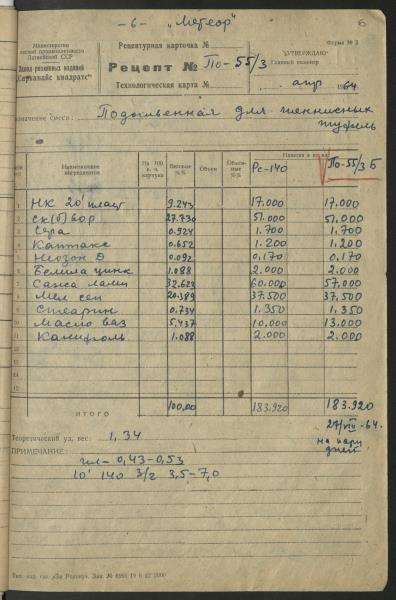 -6- "Метеор"
6
Министерство
легкой промышленности
Латвийской ССР
Завод резиновых изделий
"Сарканайс квадратс"
Рецептурная карточка №
Рецепт № По-55/3
Технологическая карта №
Форма № 2
"УТВЕРЖДАЮ"
Главный инженер
апр 1964
Назначение смеси: Подошвенная для теннисных
туфель
Наименование ингредиентов
На 100 в. ч. каучука
Весовые %%
Объем
Объемные %%
Навеска в кг
Рс-140
По-55/3 Б
1 НК 20 пласт 9.243 17.000 17.000
2 СК(б) вор 27.730 51.000 51,000
3 Сера 0.924 1.700 1.700
4 Каптакс 0.652 1.200 1.200
5 Неозон Д 0.092 0,170 0.170
6 Белила цинк 1.088 2.000 2.000
7 Сажа ламп 32,623 60.000 57.000
8 Мел сеп 20.389 37.500 37,500
9 Стеарин 0.734 1.350 1.350
10 Масло ваз 5,437 10,000 13.000
11 Канифоль 1.088 2.000 2,000
12
13
14
15
ИТОГО 100,00 183.920 183.920
27/VIII-64.
Теоретический уд. вес: 1,34
ПРИМЕЧАНИЕ:
пл- 0,43-0,53
10' 140 3/2 3,5-7,0